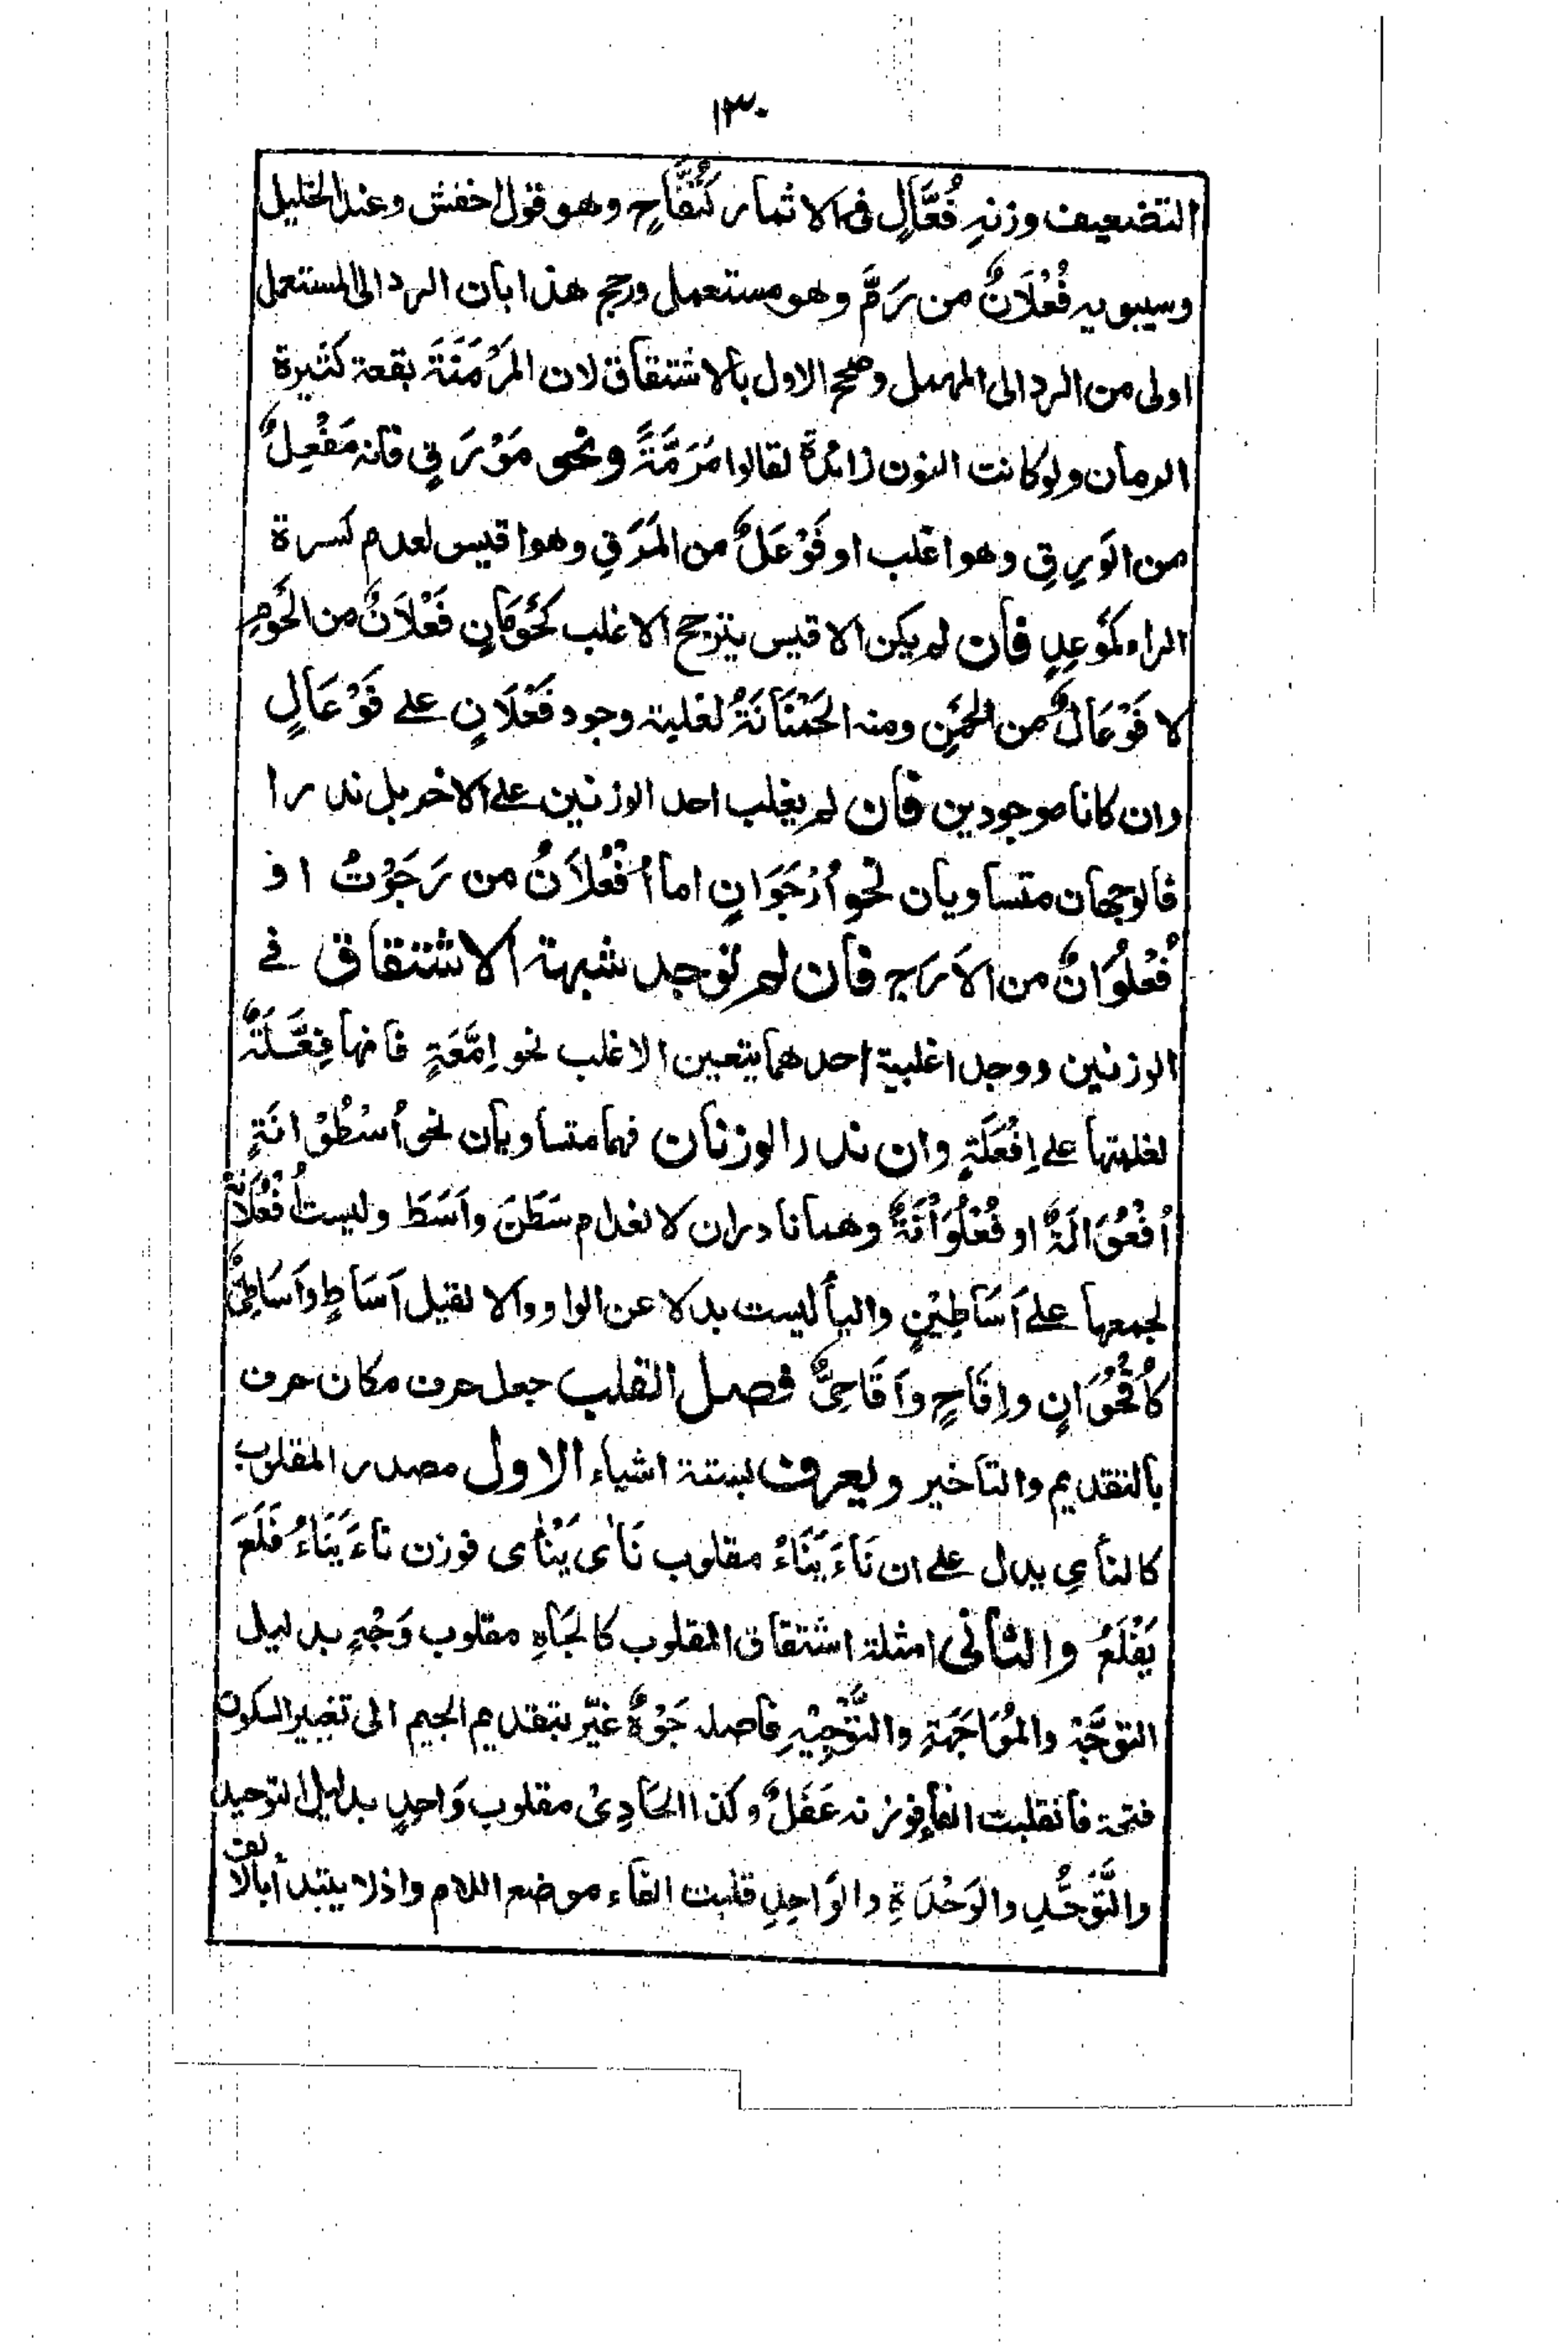 ١٣٠
التضعيف وزنهِ فُعَّالٍ فى الاثمار كَتُفَّاحٍ وهو قول اخفش وعند الخليل
وسيبويه فُعْلَانٌ من رَمَّ وهو مستعمل ورجح هذا بان الرد الى المستعمل
اولى من الرد الى المهمل وصحح الاول بالاشتقاق لان المَرْمَنَةَ بقعة كثيرة
الرمان ولو كانت النون زائدة لقالوا مَرَمَّةً ونحو مَوْرَقٍ فانه مَفْعِلٌ
من الوَرِقِ وهو اغلب او فَوْعَلٌ من المَرَقِ وهو اقيس لعدم كسرة
الراء كمَوْعِدٍ فان لم يكن الاقيس يترجح الاغلب كَحَوْمَانٍ فَعْلَانٌ من الحَوْمِ
لا فَوْعَالٌ من الحَمْنِ ومنه الحَمْنَانَةُ لغلبة وجود فَعْلَانٍ على فَوْعَالٍ
وان كانا موجودين فان لم يغلب احد الوزنين على الاخر بل ندرا
فالوجهان متساويان نحو اُرْجَوَانٍ اما اُفْعُلَانٌ من رَجَوْتُ او
فُعْلُوَانٌ من الاَرَجِ فان لم توجد شبهة الاشتقاق فے
الوزنين ووجد اغلبية احدهما يتعين الاغلب نحو اِمَّعَةٍ فانها فِعَّلَةٌ
لغلبتها على اِفْعَلَةٍ وان ندر الوزنان فهما متساويان نحو اُسْطُوَانَةٍ
اُفْعُوَالَةٌ او فُعْلُوَانَةٌ وهما نادران لانعدام سَطَنَ واَسَطَ وليست اُفْعُلَانَةٌ
لجمعها على اَسَاطِيْنٍ والياء ليست بدلا عن الواو والا لقيل اَسَاطٍ واَسَاطِىُّ
كاُقْحُوَانٍ واِقَاحٍ واَقَاحِىُّ فصل القلب جعل حرف مكان حرف
بالتقديم والتاخير ويعرف بستة اشياء الاول مصدر المقلوب
كالنأي يدل على ان نَاءَ يَنَاءُ مقلوب نَاٰى يَنْاٰى فوزن نَاءَ يَنَاءُ فَلَعَ
يَفْلَعُ والثانى امثلة اشتقاق المقلوب كالجَاهِ مقلوب وَجْهٍ بدليل
التوجّه والمُوَاجَهَةِ والتَّوْجِيْهِ فاصله جَوْهٌ غيّر بتقديم الجيم الى تغيير السكون
فتحة فانقلبت الفا فوزنه عَفَلٌ وكذا الحَادِىْ مقلوب وَاحِدٍ بدليل التوحيد
والتَّوَحُّدِ والوَحْدَةِ والوَاحِدِ قلبت الفاء موضع اللام واذ لا يبتدأ بالالف